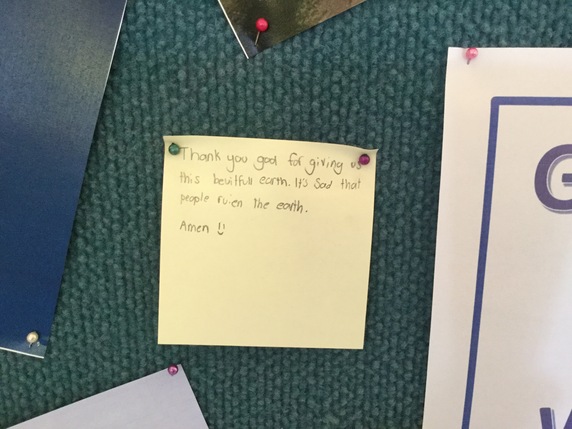 Thank you god for giving us
this beuitfull earth. It's Sad that
people ruien the earth.
Amen
G